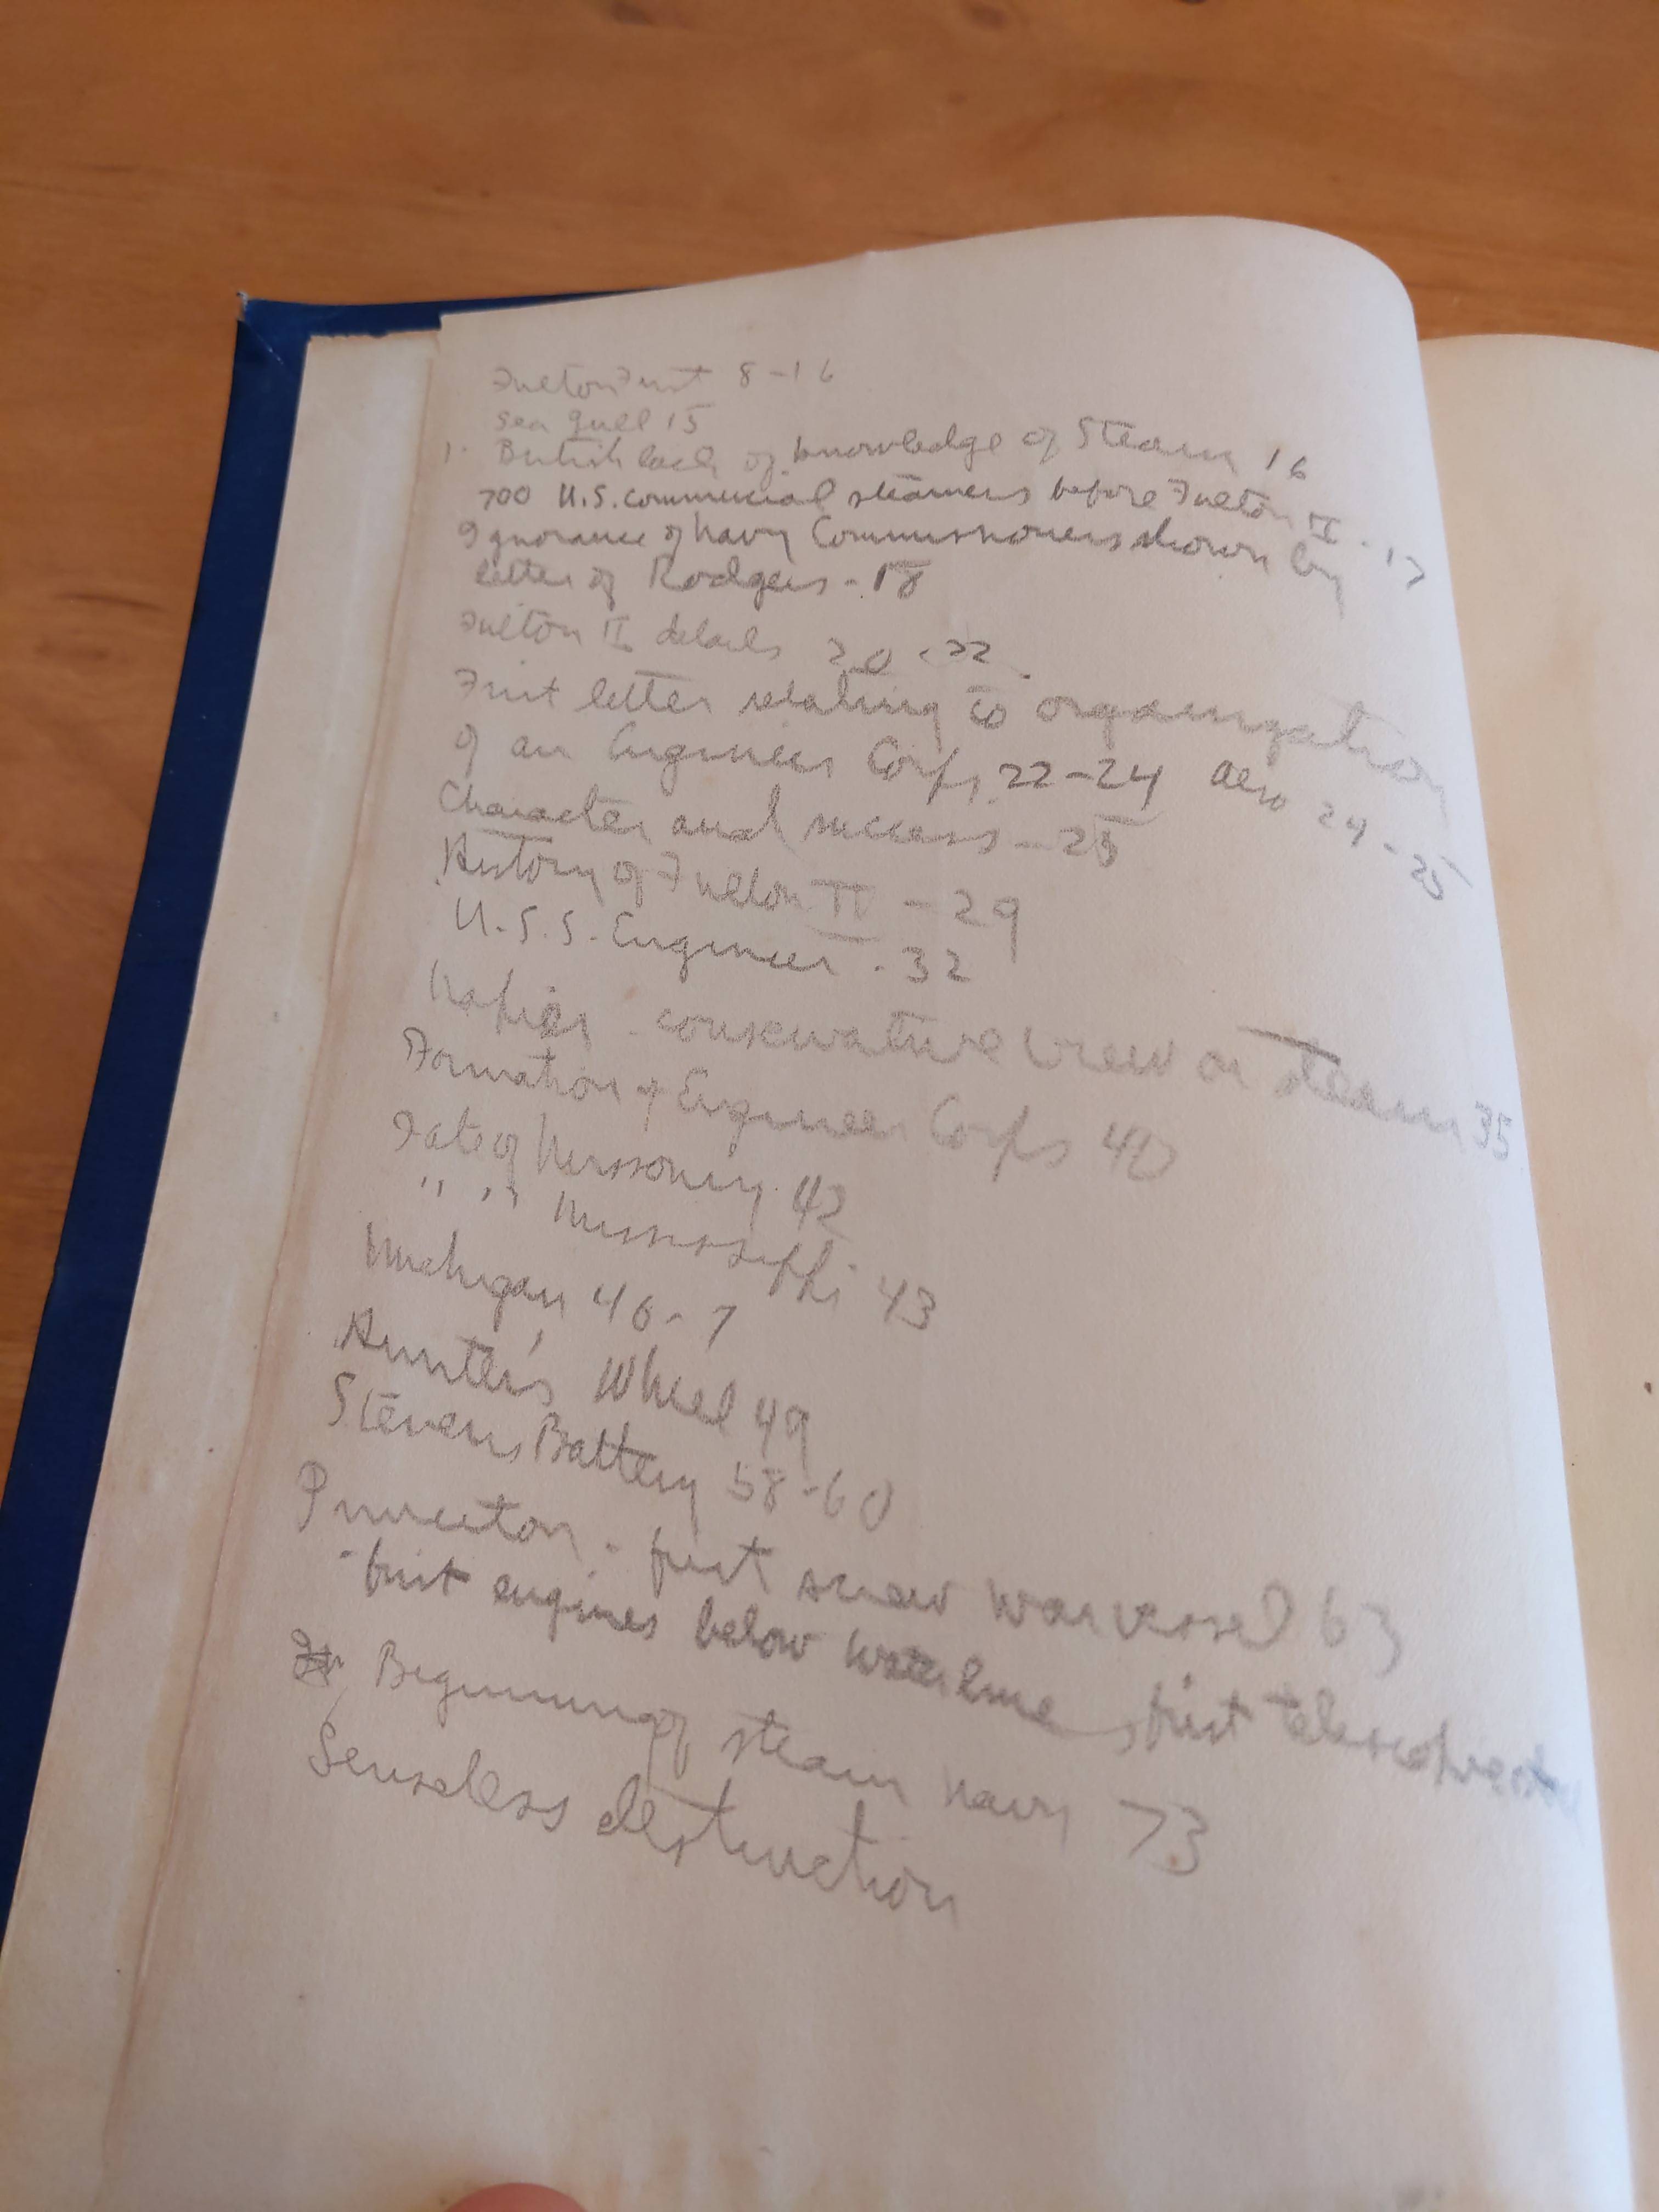 Fulton First 8-16
Sea Gull 15
1. British lack of knowledge of Steam 16
700 U.S. commercial steamers before Fulton II - 17
Ignorance of Navy Commissioners shown by
letter of Rodgers - 18
Fulton II details 20-22
First letter relating to organization
of an Engineers Corps 22-24 also 24-25
Character and success - 25
History of Fulton II - 29
U.S.S. Engineer - 32
Napier - conservative view on steam 35
Formation of Engineer Corps 40
Fate of Missouri 42
" " Mississippi 43
Michigan 46-7
Hunter's Wheel 49
Stevens Battery 58-60
Princeton - first screw war vessel 63
- first engines below waterline, first telescopic
Beginning of steam navy 73
Senseless destruction